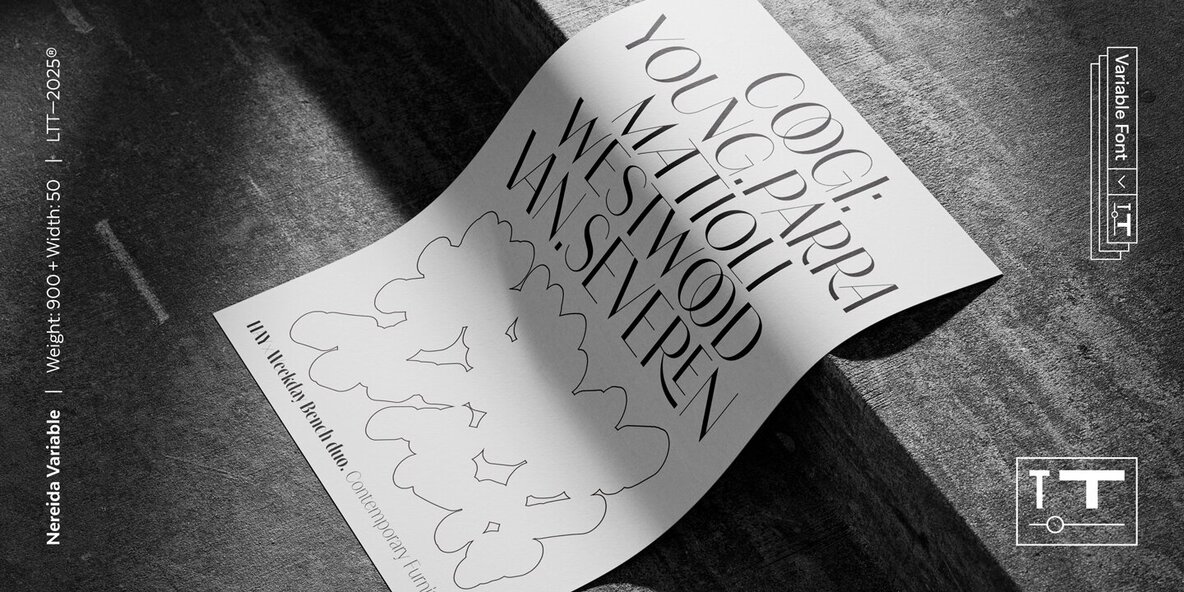 Nereida Variable | Weight:900+Width:50 | LTT—2025®
COOGI:
YOUNG.PARRA
MATIOLI
WESTWOOD
VAN.SEVEREN
HAY×Weekday Bench duo. Contemporary
Variable Font
TT
TT